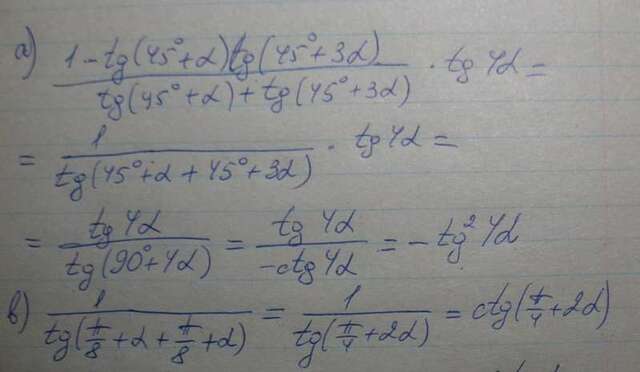 а) (1 - tg(45° + α) tg(45° + 3α)) / (tg(45° + α) + tg(45° + 3α)) · tg 4α =
= 1 / tg(45° + α + 45° + 3α) · tg 4α =
= tg 4α / tg(90° + 4α) = tg 4α / -ctg 4α = - tg² 4α
в) 1 / tg(π/8 + α + π/8 + α) = 1 / tg(π/4 + 2α) = ctg(π/4 + 2α)